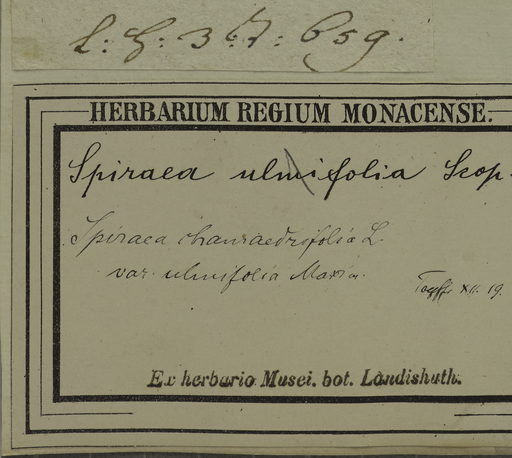 L: H: 3
659.
HERBARIUM REGIUM MONACENSE.
Spiraea ulmifolia Scop.
Spiraea chamaedrifolia L.
var. ulmifolia Maxim.
XII. 19.
Ex herbario Musei. bot. Landishuth.